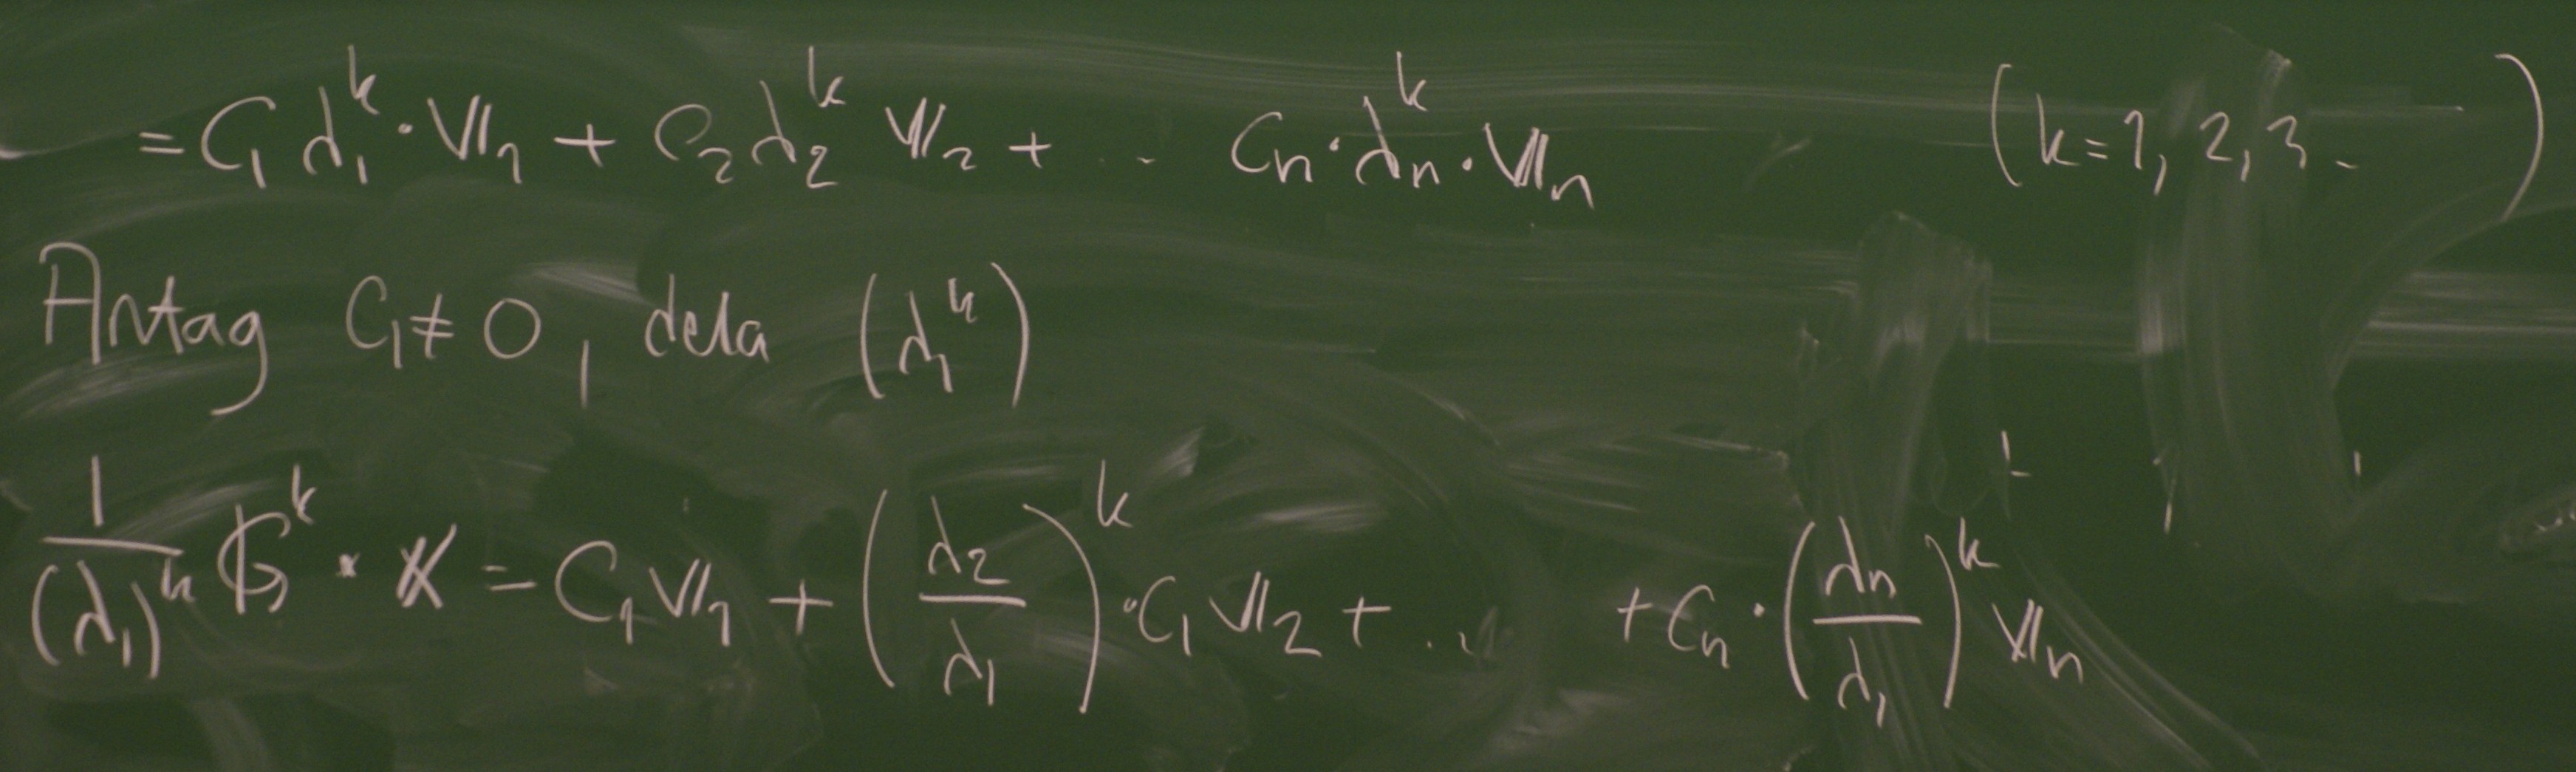 = C₁ λ₁ᵏ · 𝕍₁ + C₂ λ₂ᵏ 𝕍₂ + .. Cₙ · λₙᵏ · 𝕍ₙ (k=1, 2, 3 .. )
Antag C₁ ≠ 0, dela (λ₁ᵏ)
1/(λ₁)ᵏ 𝔾ᵏ · 𝕏 = C₁ 𝕍₁ + (λ₂/λ₁)ᵏ · C₁ 𝕍₂ + ... + Cₙ · (λₙ/λ₁)ᵏ 𝕍ₙ